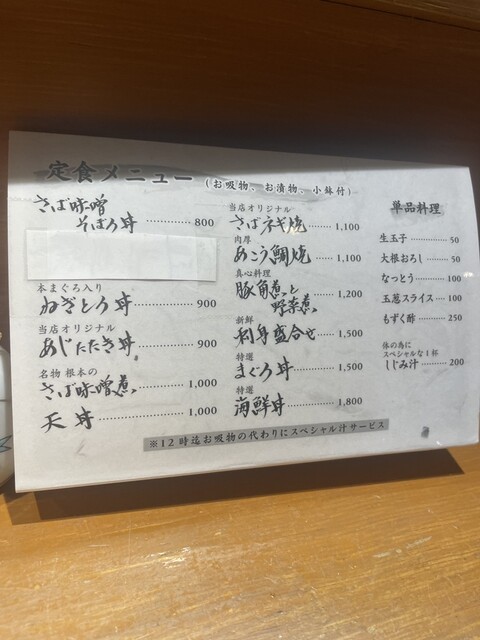 定食メニュー(お吸物、お漬物、小鉢付)
さば味噌
そぼろ丼 ………… 800
本まぐろ入り
ねぎとろ丼 ………… 900
当店オリジナル
あじたたき丼 ………… 900
名物 根本の
さば味噌煮 ………… 1,000
天丼 ………… 1,000
当店オリジナル
さばネギ焼 ……… 1,100
肉厚
あこう鯛焼 ……… 1,100
真心料理
豚角煮と
野菜煮 ……… 1,200
新鮮
刺身盛合せ ……… 1,500
特選
まぐろ丼 ……… 1,500
特選
海鮮丼 ……… 1,800
単品料理
生玉子 ……… 50
大根おろし …… 50
なっとう ……… 100
玉葱スライス … 100
もずく酢 ……… 250
体の為に
スペシャルな1杯
しじみ汁 ……… 200
※12時迄お吸物の代わりにスペシャル汁サービス